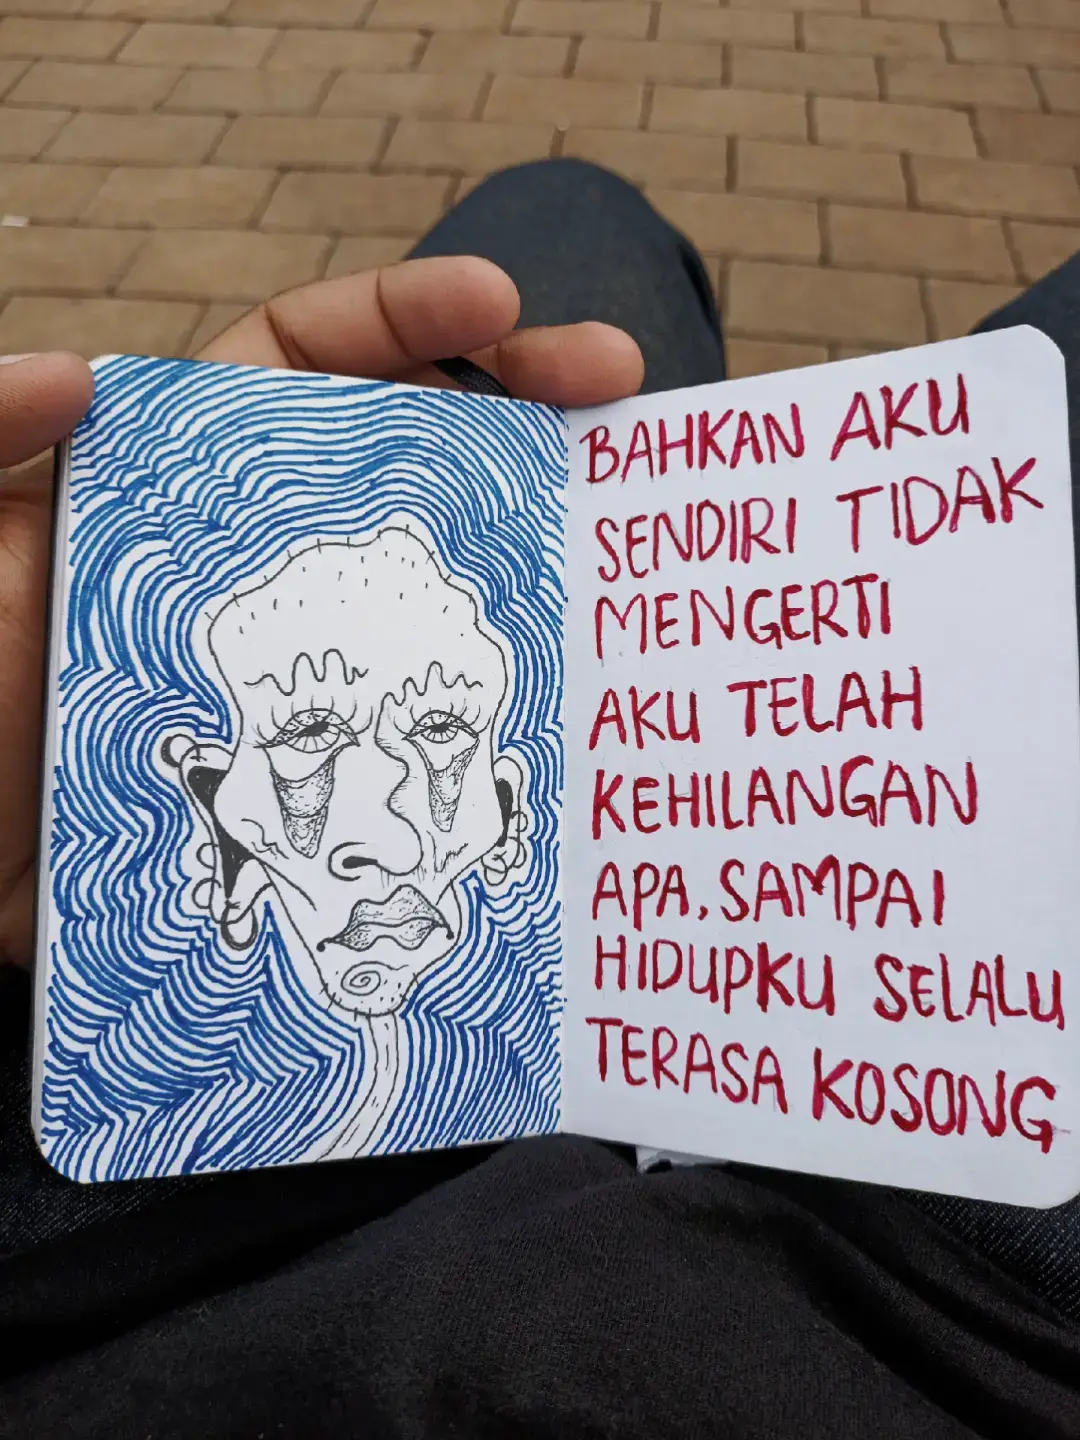 BAHKAN AKU
SENDIRI TIDAK
MENGERTI
AKU TELAH
KEHILANGAN
APA, SAMPAI
HIDUPKU SELALU
TERASA KOSONG